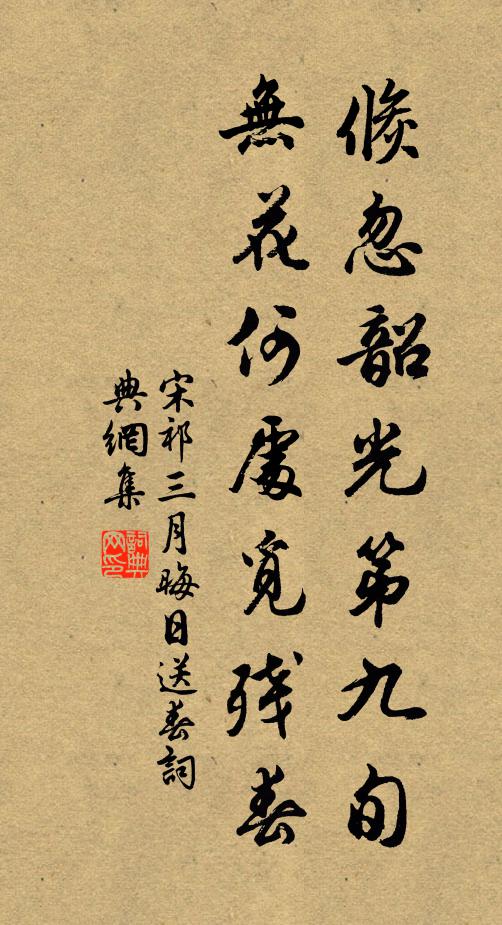 倏忽韶光第九旬
無花何處覓殘春
宋祁三月晦日送春詞
典網集
詞典网印